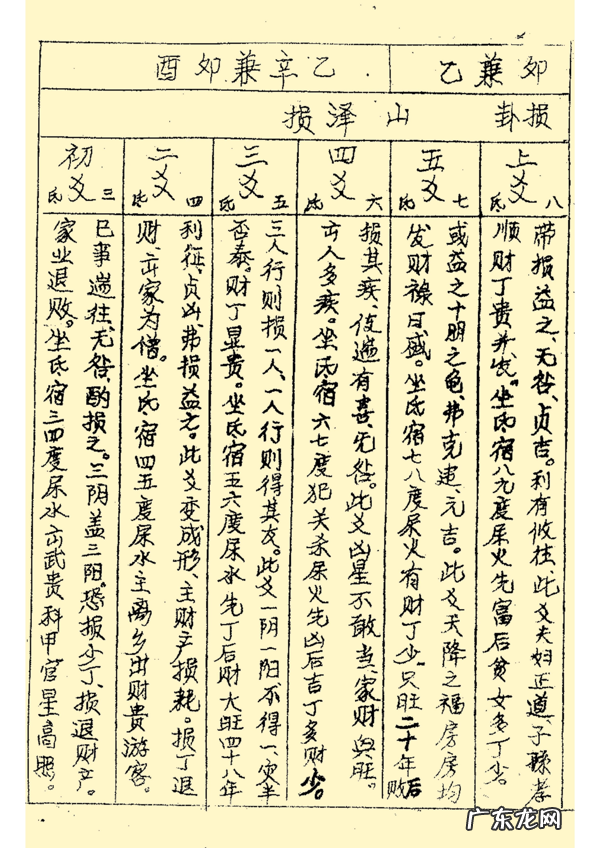 卯兼乙
乙辛兼卯酉
损卦
山泽损
上爻
氐 八
带损益之、无咎、贞吉。利有攸往、此爻夫妇正道、子孙孝
顺财丁贵并发。坐氐宿八九度尿火先富后贫女多丁少。
五爻
氐 七
或益之十朋之龟、弗克违、元吉。此爻天降之福房房均
发财禄日盛。坐氐宿七八度尿火有财丁少只旺二十年后败
四爻
氐 六
损其疾、使遄有喜、无咎。此爻凶星不敢当、家财兴旺。
亦人多疾。坐氐宿六七度犯关杀尿火先凶后吉丁多财少。
三爻
氐 五
三人行则损一人、一人行则得其友。此爻一阴一阳不得一灾半
否泰。财丁显贵。坐氐宿五六度尿水先丁后财大旺四十八年
二爻
氐 四
利征、贞凶、弗损益之。此爻变成形、主财产损耗。损丁退
财、亦家为僧。坐氐宿四五度尿水主离乡出财贵游客。
初爻
氐 三
巳事遄往、无咎、酌损之。三阴盖三阳。恐报少丁、损退财产。
家业退败。坐氐宿三四度尿水亦武贵科甲官星高照。
广东龙网